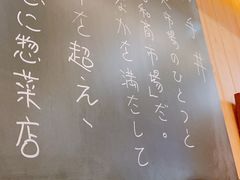 丼
市場のひとつと
和商市場」だ。
なかを満たして
を超え、
に惣菜店